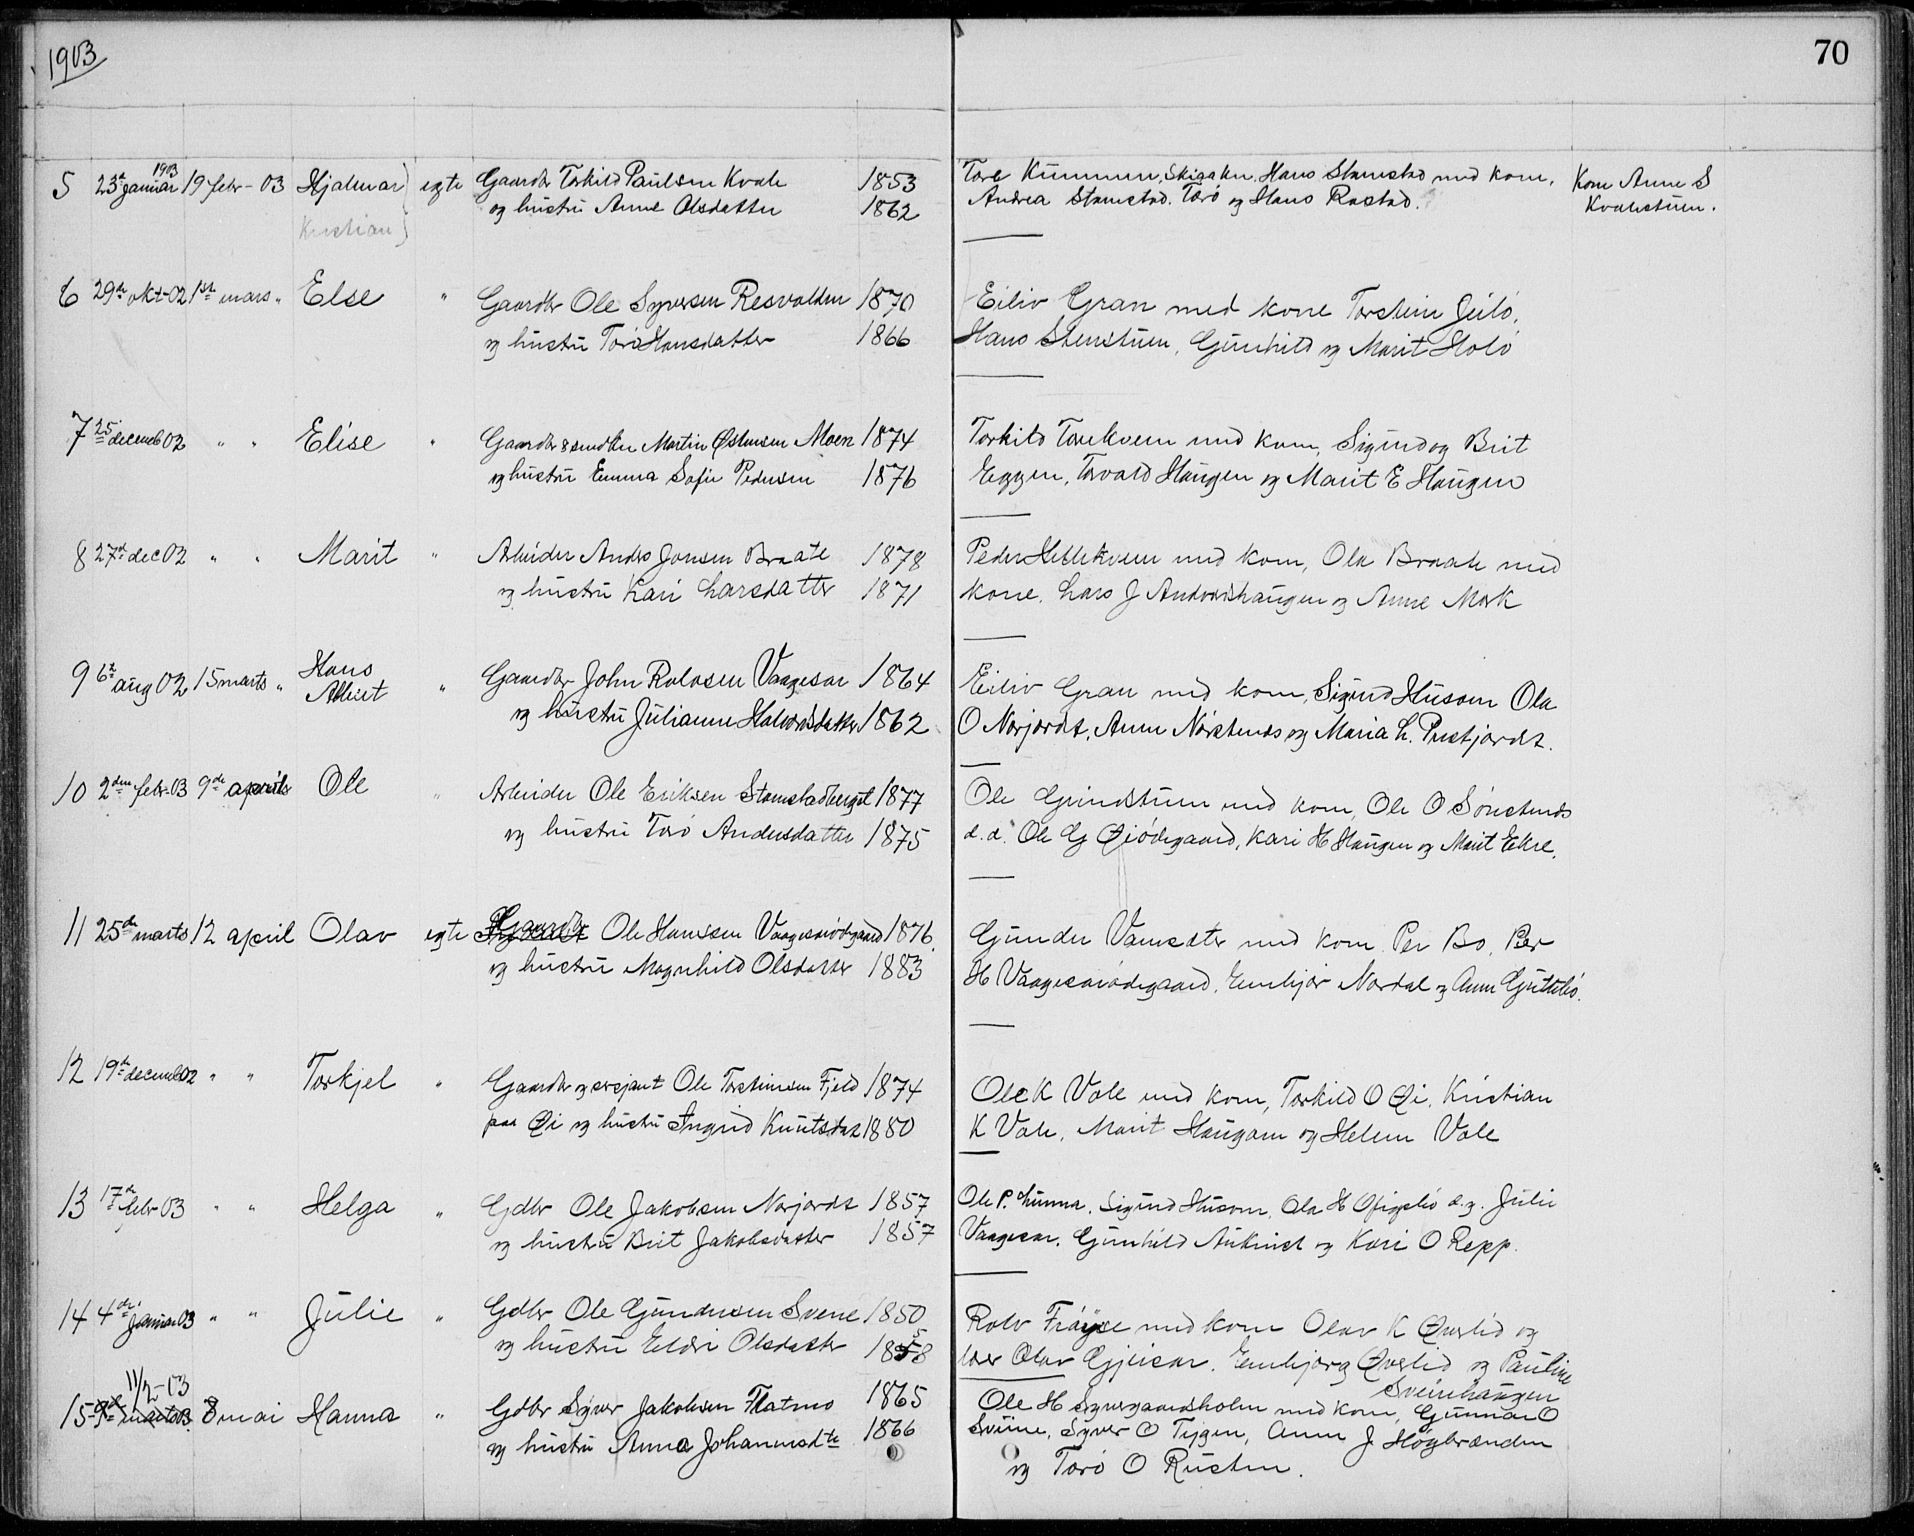 1903
70
5 23de januar 1903 19 febr - 03 Hjalmar egte Gaardbr Torkild Paulsen Kvale 1853
Kristian og hustru Anne Olsdatter 1862
Tore Kummen, Skigaker, Hans Stamstad med kone, Kone Anne S
Andrea Stamstad. Torø og Hans Rastad. Kvalestuen.
6 29de okt-02 1ste mars " Else " Gaardbr Ole Syversen Resvolden 1870
og hustru Torø Hansdatter 1866
Eiliv Gran med kone Torstein Jeilo,
Hans Stenstuen, Gunhild og Marit Holo
7 25de decemb 02 " " Elise " Gaardbr & smedkr Martin Østensen Moen 1874
og hustru Emma Sofie Pedersen 1876
Torkild Torekvern med kone, Sigurd og Brit
Eggen, Torvald Haugen og Marit E Haugen
8 27de dec 02 " " Marit " Arbeider Andrs Jonsen Braate 1878
og hustru Kari Larsdatter 1871
Peder Hellekvern med kone, Ola Braate med
kone, Lars J Andvordshaugen og Anne Mork
9 6te aug 02 15 marts " Hans
Albert " Gaardbr John Rolvsen Vaagesar 1864
og hustru Julianne Halvorsdatter 1862
Eiliv Gran med kone, Sigurd Husom Ola
O Norjordt, Anne Nørstenes og Maria L. Prestjordt.
10 2den febr-03 9de april Ole " Arbeider Ole Eriksen Stamstadberget 1877
og hustru Torø Andersdatter 1875
Ole Grindstuen med kone, Ole O Sørstenes
d.a. Ole G Øiødegaard, Kari H Haugen og Marit Ekre.
11 25de marts 12 april Olav egte Gaardbr Ole Hansen Vaagesarødegaard 1876
og hustru Magnhild Olsdatter 1883
Gunder Vamsater med kone Per Bo, Per
H Vaagesarødegaard, Embjør Nordal og Anne Guttulsø.
12 19de decemb 02 " " Torkjel " Gaardbr og sersjant Ole Torstinsen Fjeld 1874
paa Øi og hustru Ingrid Knutsdat 1880
Ole K Vole med kone, Torkild O Øi, Kristian
K Vole, Marit Haugom og Helene Vole
13 17de febr 03 " " Helga " Gdbr Ole Jakobsen Norjordt 1857
og hustru Brit Jakobsdatter 1857
Ole P. Lunna, Sigurd Husom, Ola H Ofigslio d.y. Julie
Vaagesar, Gunhild Aukrust og Kari O Repp.
14 4de januar 03 " " Julie " Gdbr Ole Gundersen Svene 1850
og hustru Eldri Olsdatter 1858
Rolv Frøyse med kone Olav K Øverlid og
lærer Olav Gjeisar, Embjørg Øverlid og Pauline
Sveinhaugen
11/2-03
15 8 mai Hanna " Gdbr Syver Jakobsen Flatmo 1865
og hustru Anna Johannesdtr 1866
Ole H Syvergaardsholen med kone, Gunnar O
Sviine, Syver O Tygen, Anne J Høgbrænden
og Torø O Rusten.